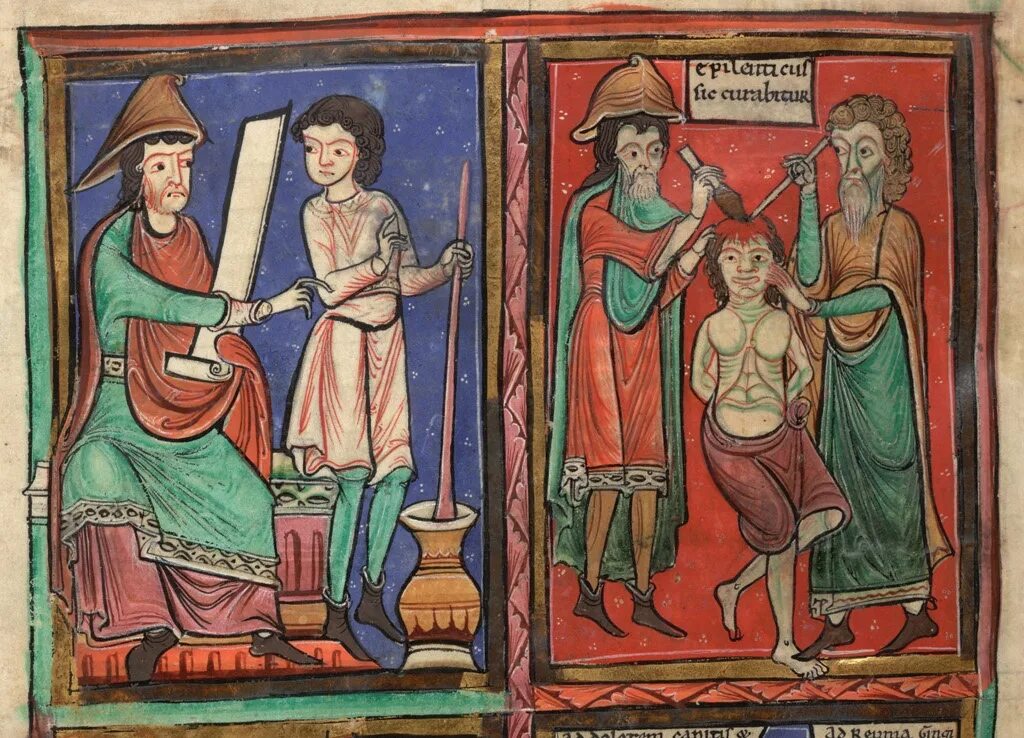 epilenticus
sic curabitur
ad dolorem capitis &
ad Reuma Gingi